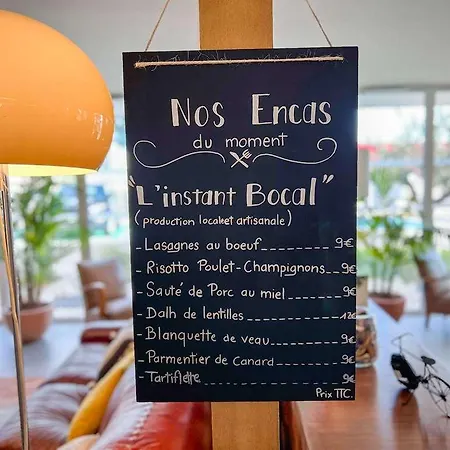 Nos Encas
du moment
"L'instant Bocal"
(production locale et artisanale)
- Lasagnes au boeuf 9€
- Risotto Poulet-Champignons 9€
- Sauté de Porc au miel 9€
- Dalh de lentilles 12€
- Blanquette de veau 9€
- Parmentier de Canard 9€
- Tartiflette 9€
Prix TTC.